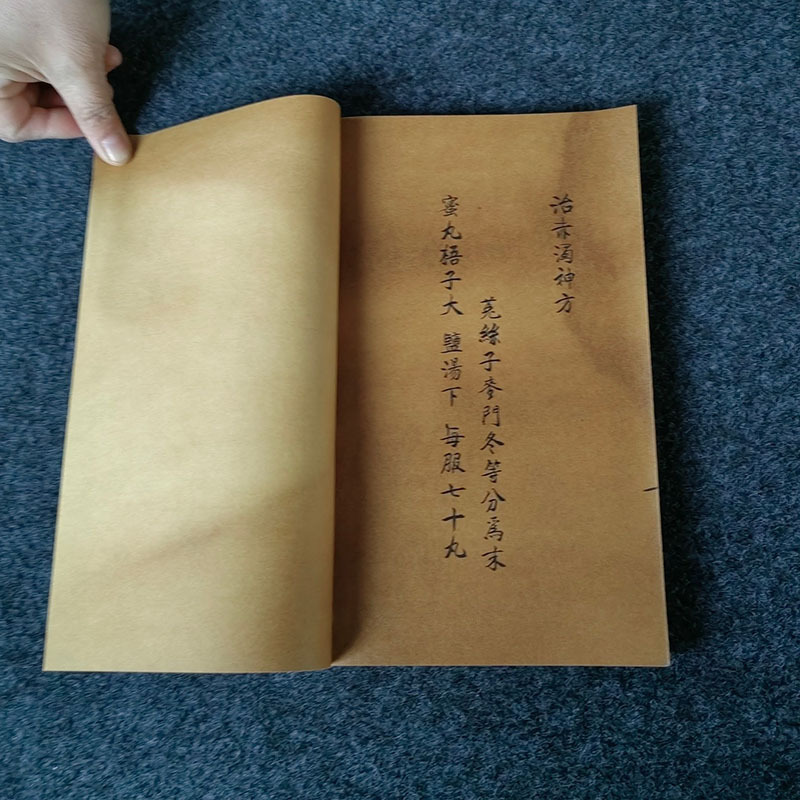 治赤濁神方
菟絲子麥門冬等分爲末
蜜丸梧子大 鹽湯下 每服七十丸